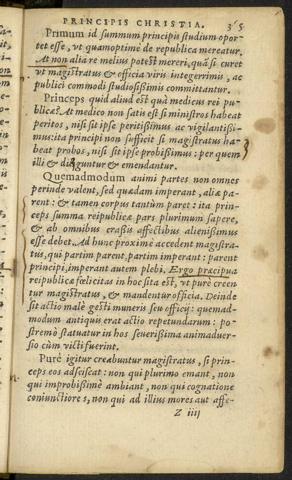 PRINCIPIS CHRISTIA. 365
Primum id summum principis studium opor-
tet esse, vt quamoptime de republica mereatur.
At non alia re melius potest mereri, quá si curet
vt magistratus & officia viris integerrimis, ac
publici commodi studiosissimis committantur.
Princeps quid aliud est quá medicus rei pu-
blicæ? At medico non satis est si ministros habeat
peritos, nisi sit ipse peritissimus ac vigilantissi-
mus: ita principi non sufficit si magistratus ha-
beat probos, nisi sit ipse probissimus: per quem
illi & diliguntur & emendantur.
Quemadmodum animi partes non omnes
perinde valent, sed quædam imperant, aliæ pa-
rent: & tamen corpus tantùm paret: ita prin-
ceps summa reipublicæ pars plurimum sapere,
& ab omnibus crassis affectibus alienissimus
esse debet. Ad hunc proximè accedent magistra-
tus, qui partim parent, partim imperant: parent
principi, imperant autem plebi. Ergo præcipua
reipublicæ fœlicitas in hoc sita est, vt purè creen
tur magistratus, & mandentur officia. Deinde
sit actio malè gesti muneris seu officij: quemad-
modum antiquis erat actio repetundarum: po-
stremò statuatur in hos seuerissima animaduer-
sio cùm victi fuerint.
Purè igitur creabuntur magistratus, si prin-
ceps eos adsciscat: non qui plurimo emant, non
qui improbissimè ambiant, non qui cognatione
coniunctiores, non qui ad illius mores aut affe-
Z iiij